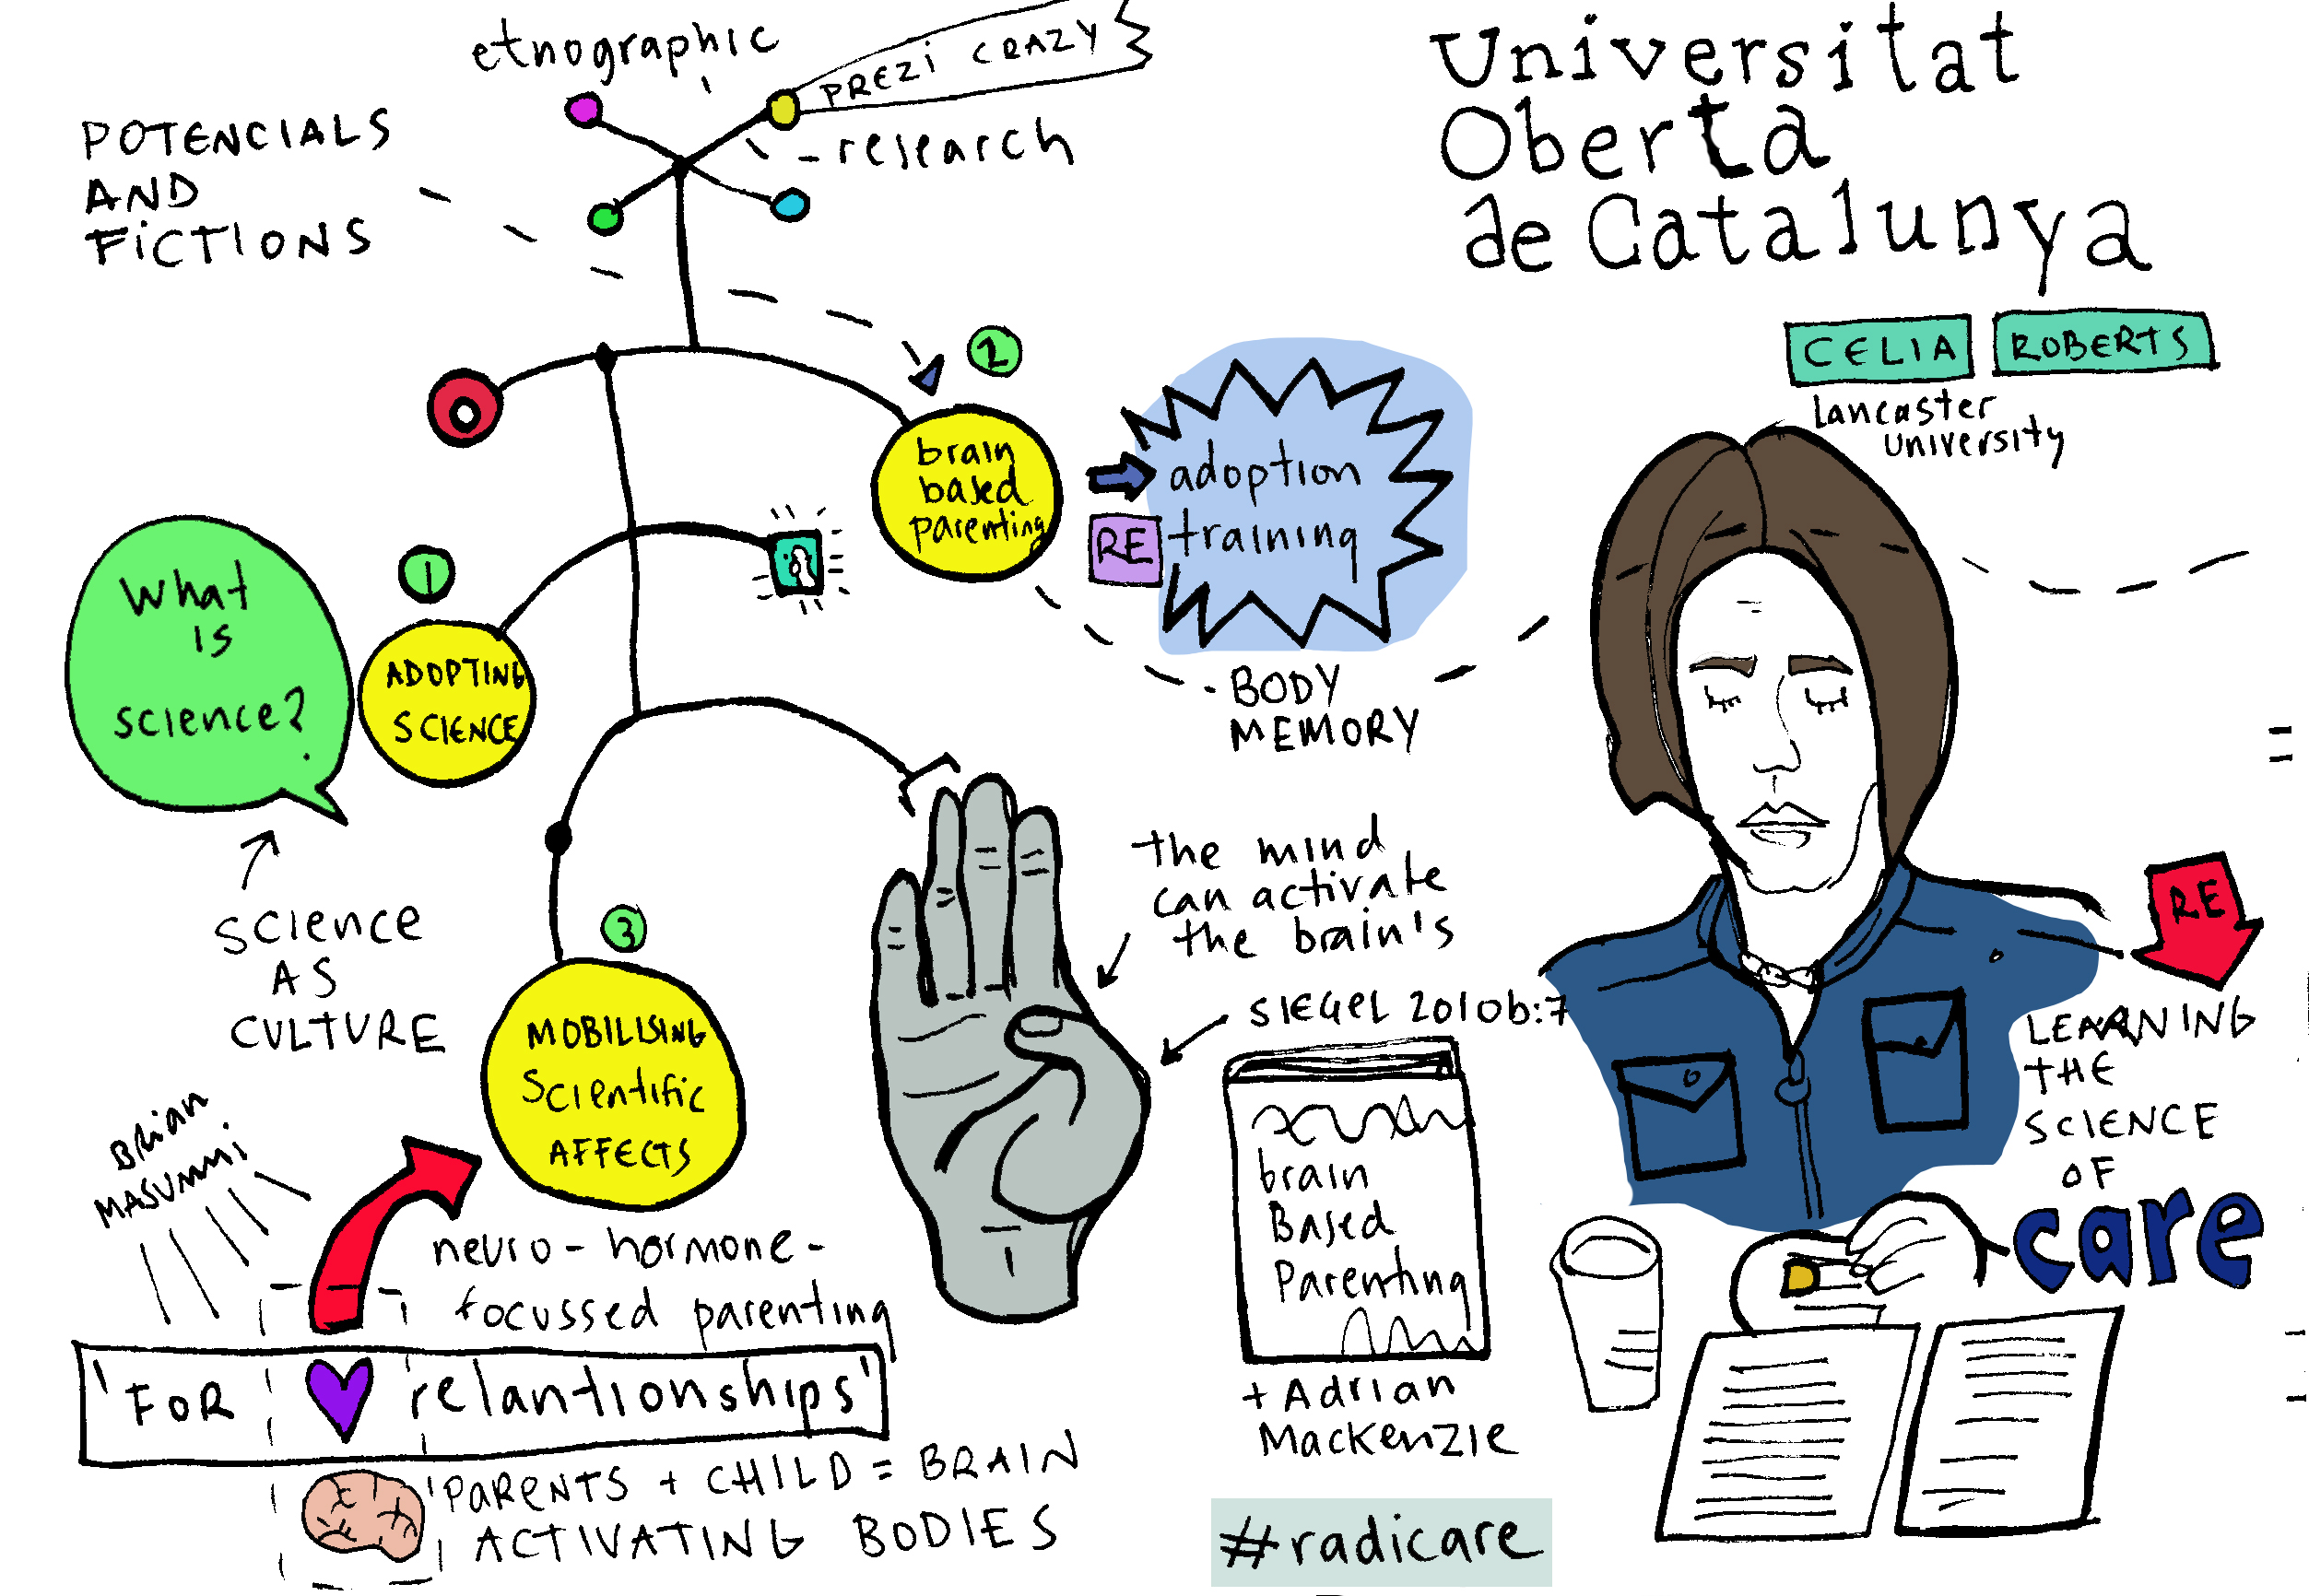 etnographic
PREZI CRAZY
- research
POTENCIALS
AND
FICTIONS
Universitat
Oberta
de Catalunya
CELIA ROBERTS
lancaster
university
2
brain
based
parenting
adoption
RE training
BODY
MEMORY
1
What
is
science?
ADOPTING
SCIENCE
SCIENCE
AS
CULTURE
3
MOBILISING
SCIENTIFIC
AFFECTS
the mind
can activate
the brain's
SIEGEL 2010b:7
brain
Based
Parenting
+ Adrian
MacKenzie
RE
LEARNING
THE
SCIENCE
OF
care
Brian
MASUMMI
neuro - hormone -
focussed parenting
'FOR relantionships'
PARENTS + CHILD = BRAIN
ACTIVATING BODIES
#radicare